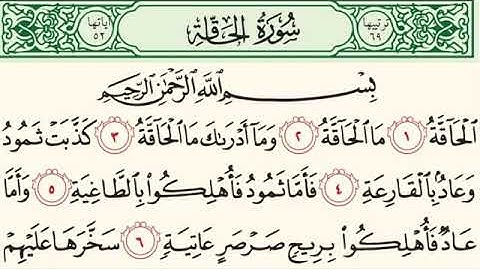 ترتيبها ٦٩ سُورَةُ الحَاقَّةِ آياتها ٥٢
بِسْمِ اللَّهِ الرَّحْمَٰنِ الرَّحِيمِ
ٱلْحَآقَّةُ ١ مَا ٱلْحَآقَّةُ ٢ وَمَآ أَدْرَىٰكَ مَا ٱلْحَآقَّةُ ٣ كَذَّبَتْ ثَمُودُ
وَعَادٌۢ بِٱلْقَارِعَةِ ٤ فَأَمَّا ثَمُودُ فَأُهْلِكُوا۟ بِٱلطَّاغِيَةِ ٥ وَأَمَّا
عَادٌ فَأُهْلِكُوا۟ بِرِيحٍ صَرْصَرٍ عَاتِيَةٍ ٦ سَخَّرَهَا عَلَيْهِمْ